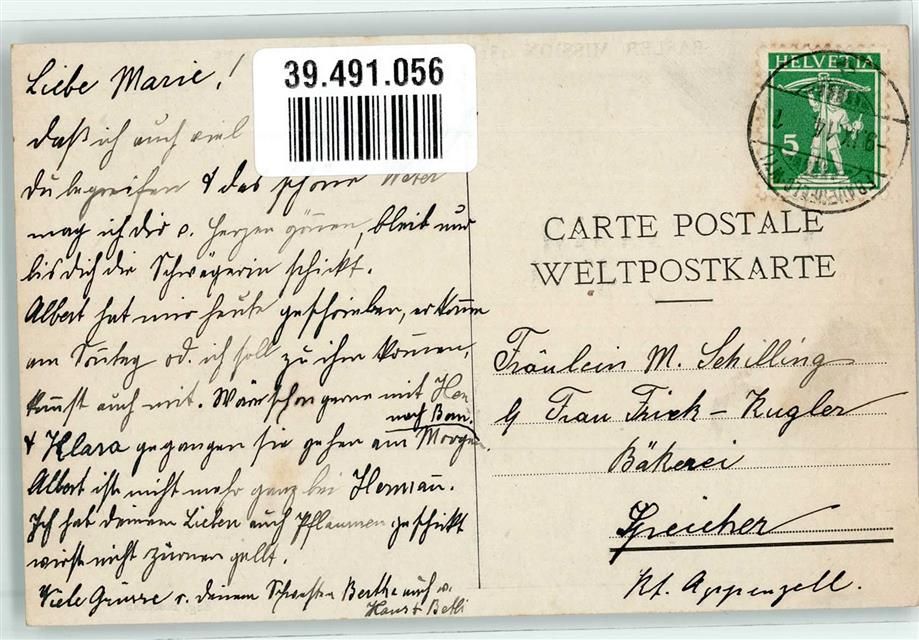 Liebe Marie!
39.491.056
daß ich auch viel
du begreifen & das schöne Weter
mag ich dir v. Herzen gönen, bleib nur
bis dich die Schwägerin schickt.
Albert hat mir heute geschrieben, er komm
am Sontag od. ich soll zu ihm kommen,
kannst auch mit. Wäre schon gerne mit
nach Bern.
& Klara gegangen sie gehen am Morgen
Albert ist nicht mehr ganz bei Hermañ.
Ich hab deinem Lieben auch Pflaumen geschikt
wirst nicht zürnen gellt.
Viele Grüsse v. deiner Schwester Bertha auch v.
Hans & Betli
BASLER MISSION
HELVETIA
5
CARTE POSTALE
WELTPOSTKARTE
Fräulein M. Schilling
b/ Frau Frick - Kugler
Bäkerei
Speicher
Kt. Appenzell.